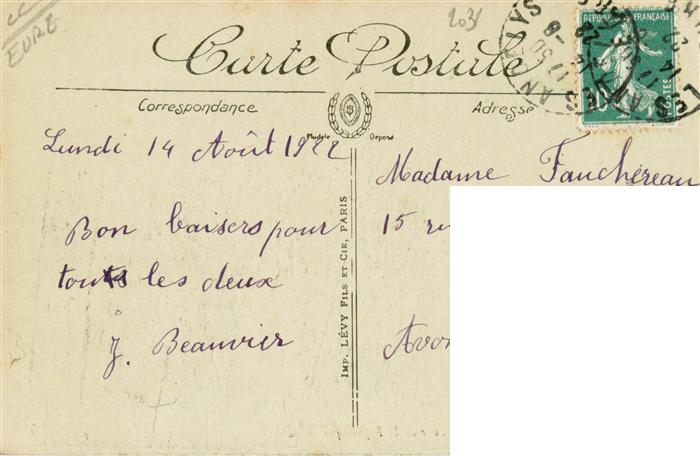 EURE
2031
RÉPUBLIQUE FRANÇAISE
POSTES
Carte Postale
Correspondance
Adresse
Modèle Déposé
Lundi 14 Août 1922
Bon baisers pour
touts les deux
J. Beauvier
IMP. LÉVY FILS ET CIE, PARIS
Madame Fauchereau
15